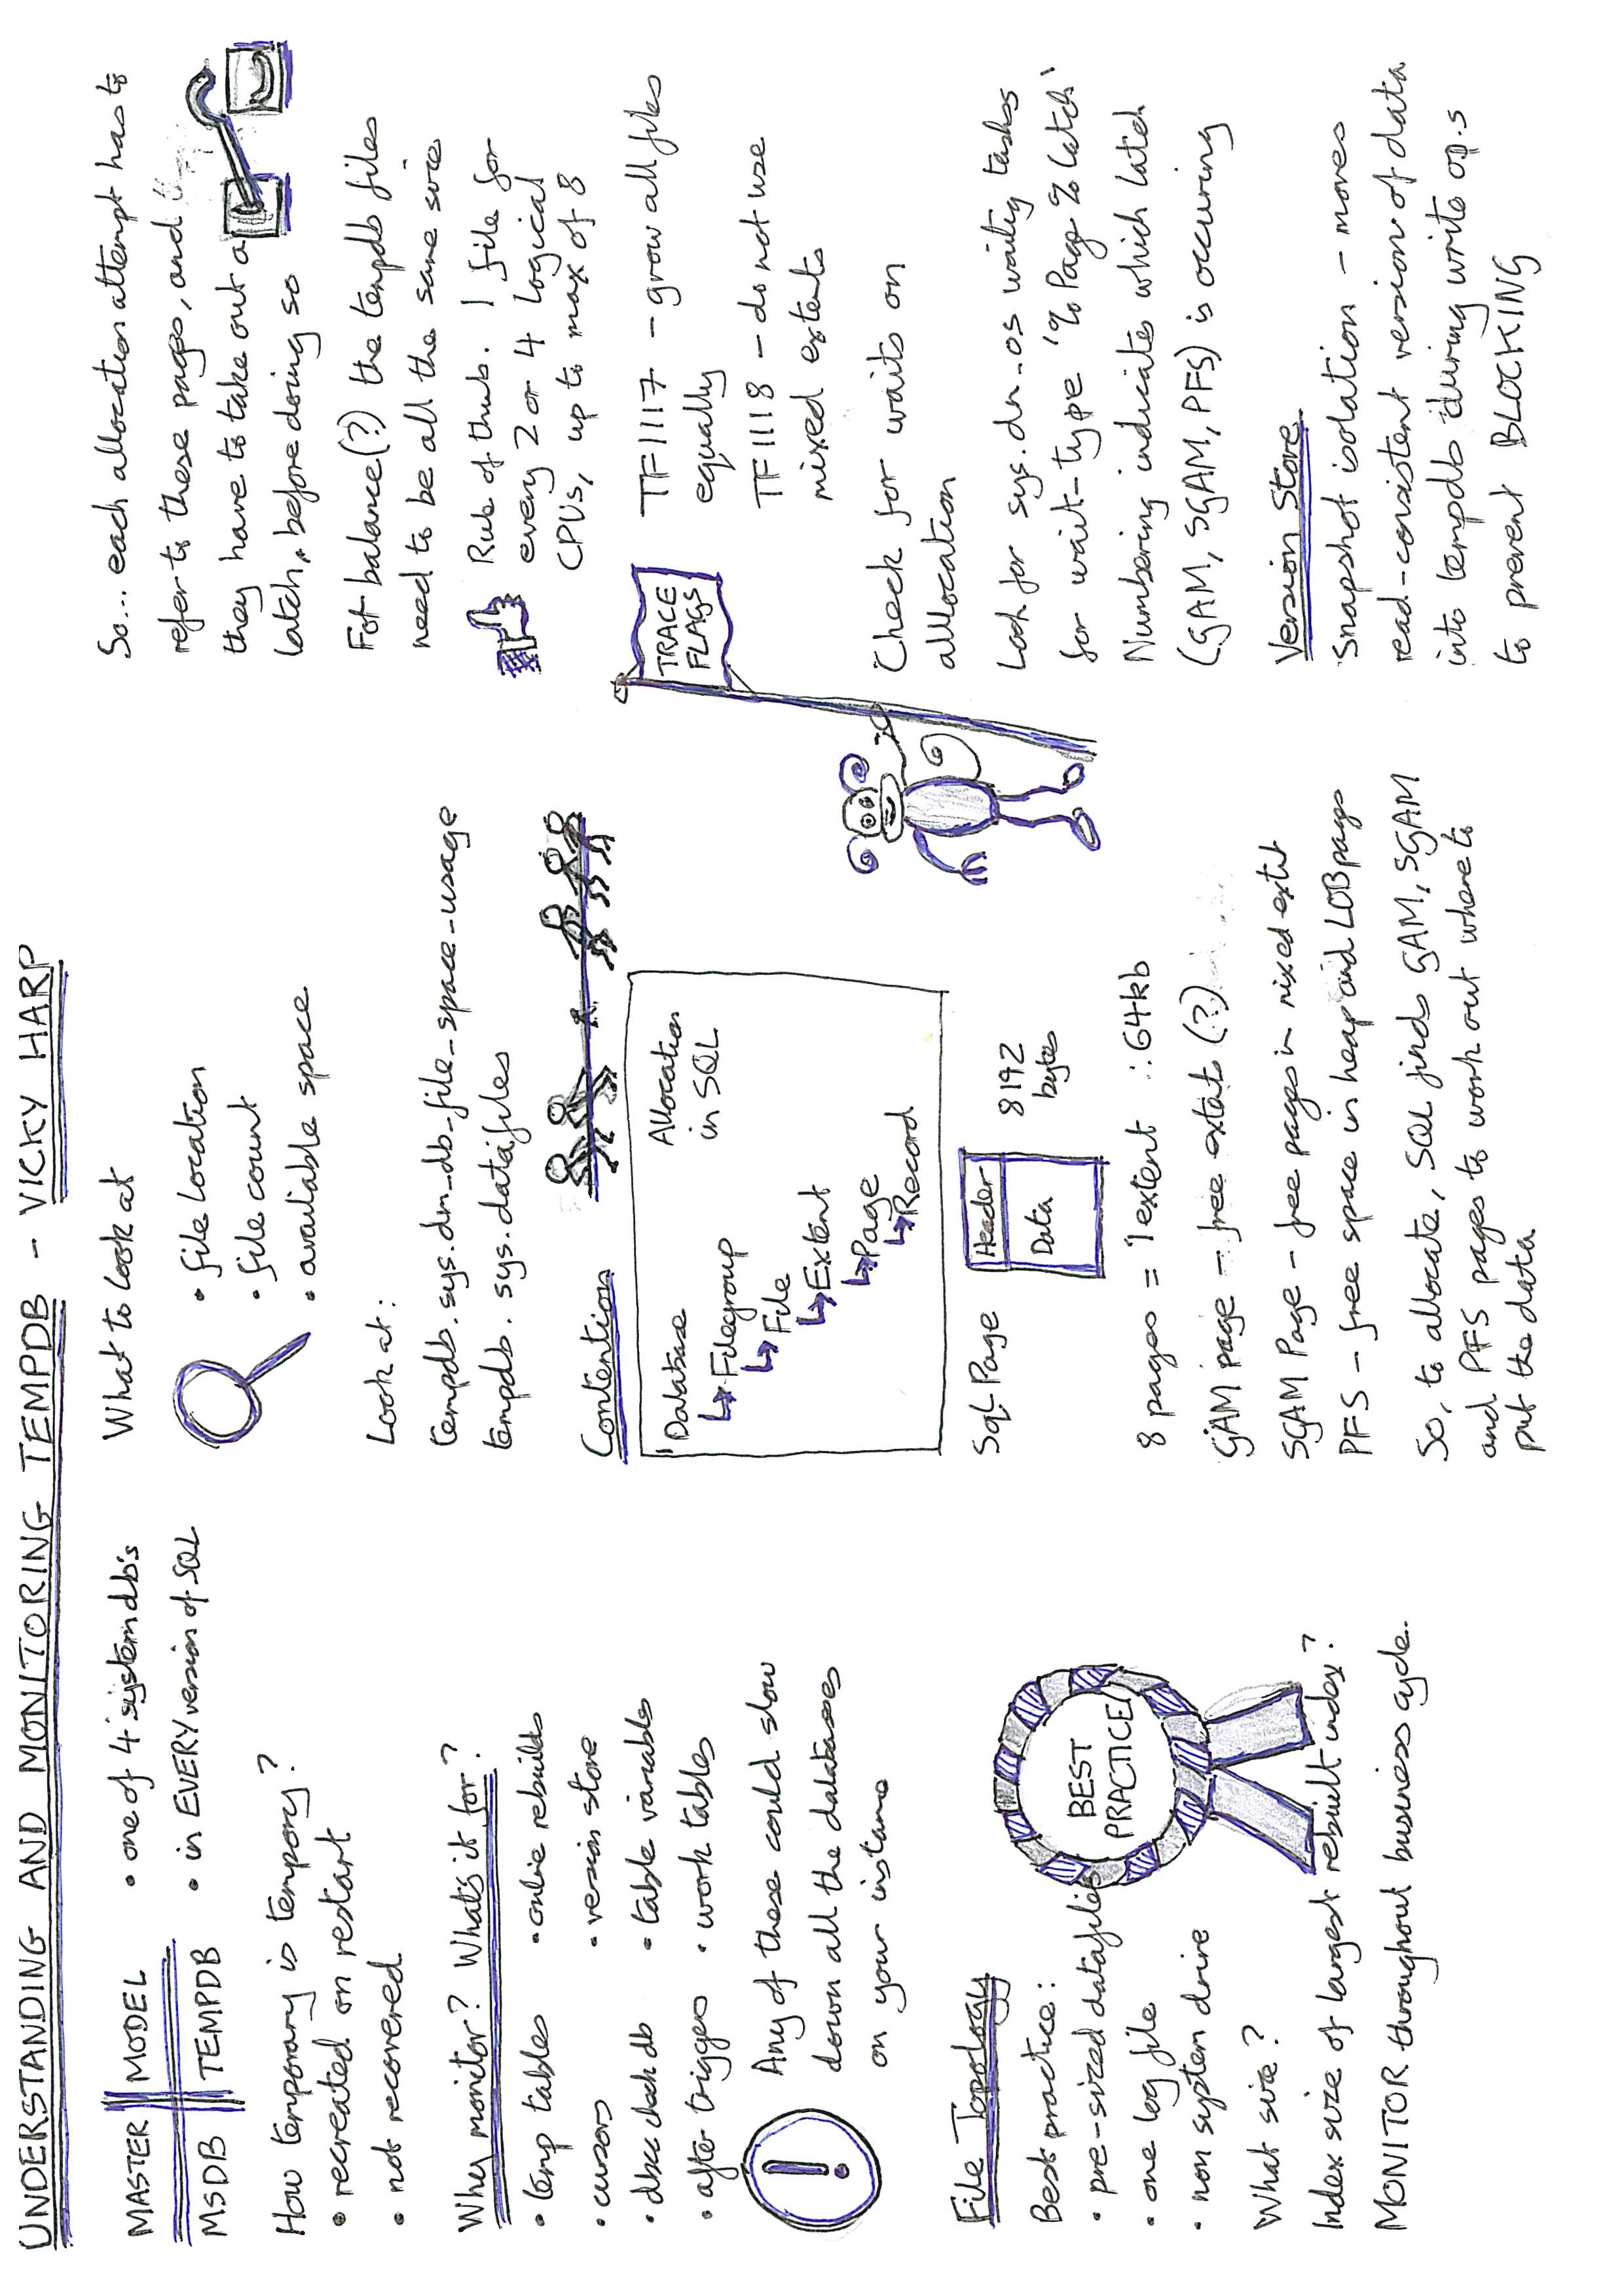 UNDERSTANDING AND MONITORING TEMPDB - VICKY HARP
MASTER MODEL
MSDB TEMPDB
• one of 4 system db's
• in EVERY version of SQL
How temporary is tempory?
• recreated on restart
• not recovered
Why monitor? What's it for?
• temp tables • online rebuilds
• cursors • version store
• dbcc check db • table variables
• after triggers • work tables
! Any of these could slow
down all the databases
on your instance
File Topology
Best practice:
• pre-sized datafiles
• one log file
• non system drive
BEST
PRACTICE
What size?
Index size of largest rebuilt index?
MONITOR throughout business cycle.
What to look at
• file location
• file count
• available space
Look at:
tempdb.sys.dm_db_file_space_usage
tempdb.sys.datafiles
Contention
Database
Filegroup
File
Extent
Page
Record
Allocation
in SQL
SQL Page
Header
Data
8192
bytes
8 pages = 1 extent ∴ 64kb
GAM page - free extats (?)
SGAM Page - free pages in mixed extit
PFS - free space in heap and LOB pages
So, to allocate, SQL finds GAM, SGAM
and PFS pages to work out where to
put the data
So... each allocation attempt has to
refer to these pages, and
they have to take out a
latch, before doing so
For balance(?) the tempdb files
need to be all the same size
Rule of thub. 1 file for
every 2 or 4 logical
CPUs, up to max of 8
TRACE
FLAGS
TF1117 - grow all files
equally
TF1118 - do not use
mixed extents
Check for waits on
alllocation
Look for sys.dm_os waiting tasks
for wait-type '% Page % latch'
Numbering indicates which latch
(GAM, SGAM, PFS) is occuring
Version Store
Snapshot isolation - moves
read-consistent version of data
into tempdb during write op.s
to prevent BLOCKING